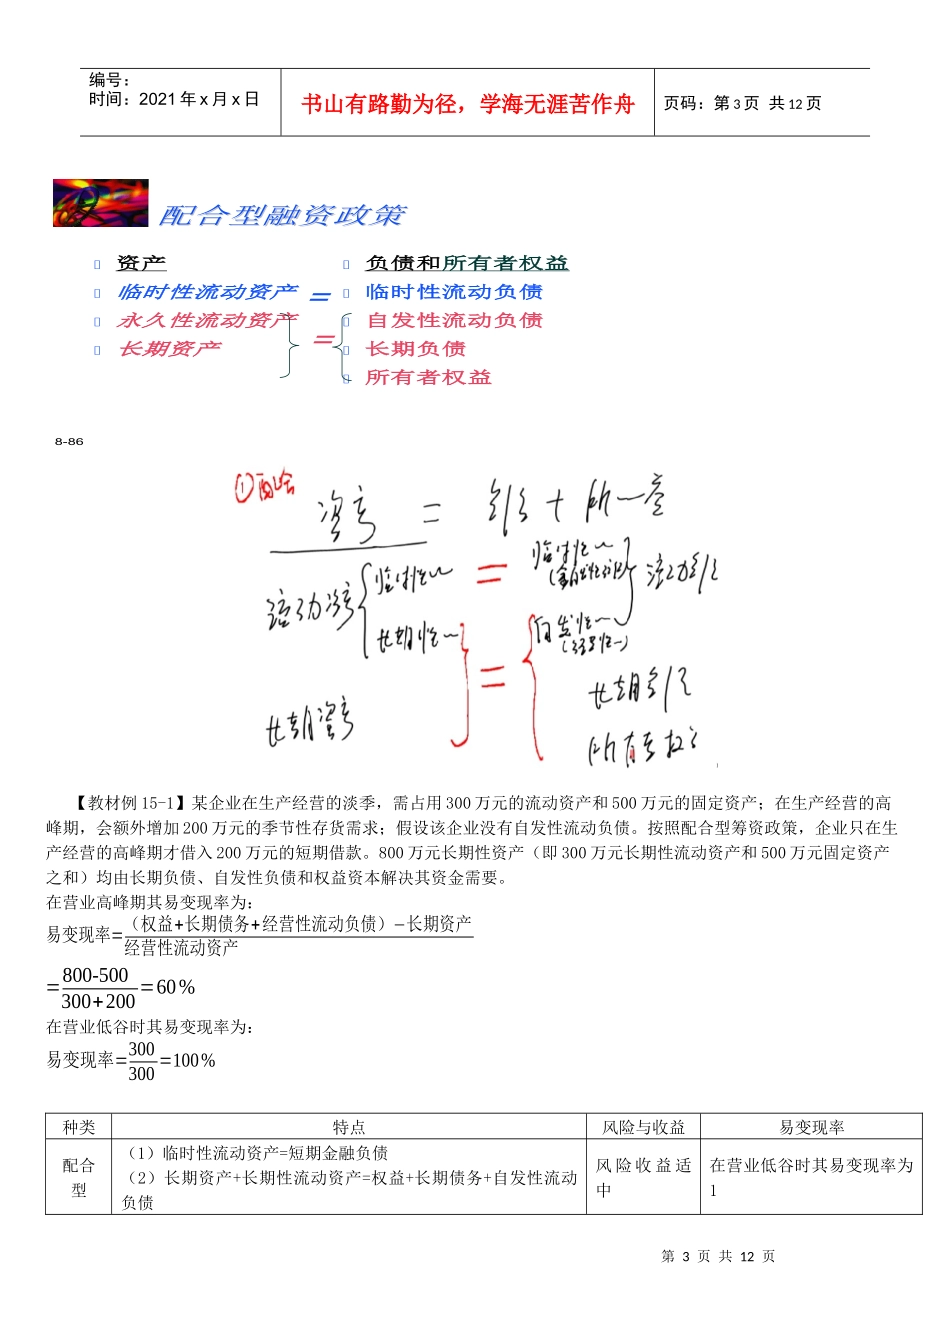 编号：
时间：2021年x月x日
书山有路勤为径，学海无涯苦作舟
页码：第3页 共12页
配合型融资政策
资产
负债和所有者权益
临时性流动资产 =
临时性流动负债
永久性流动资产
自发性流动负债
=
长期资产
长期负债
所有者权益
8-86
①配合
资产 = 负债 + 所~益
流动资产
临时性~ = 临时性~
流动负债
长期性~
自发性~
=
长期资产
长期负债
所有者权
【教材例 15-1】某企业在生产经营的淡季，需占用 300 万元的流动资产和 500 万元的固定资产；在生产经营的高
峰期，会额外增加 200 万元的季节性存货需求；假设该企业没有自发性流动负债。按照配合型筹资政策，企业只在生
产经营的高峰期才借入 200 万元的短期借款。800 万元长期性资产（即 300 万元长期性流动资产和 500 万元固定资产
之和）均由长期负债、自发性负债和权益资本解决其资金需要。
在营业高峰期其易变现率为：
易变现率=（权益+长期债务+经营性流动负债）−长期资产
经营性流动资产
=800-500
300+200
=60%
在营业低谷时其易变现率为：
易变现率=300
300
=100%
种类 特点 风险与收益 易变现率
配合
型
（1）临时性流动资产=短期金融负债
（2）长期资产+长期性流动资产=权益+长期债务+自发性流动
负债
风险收益适
中
在营业低谷时其易变现率为
1
第 3 页 共 12 页